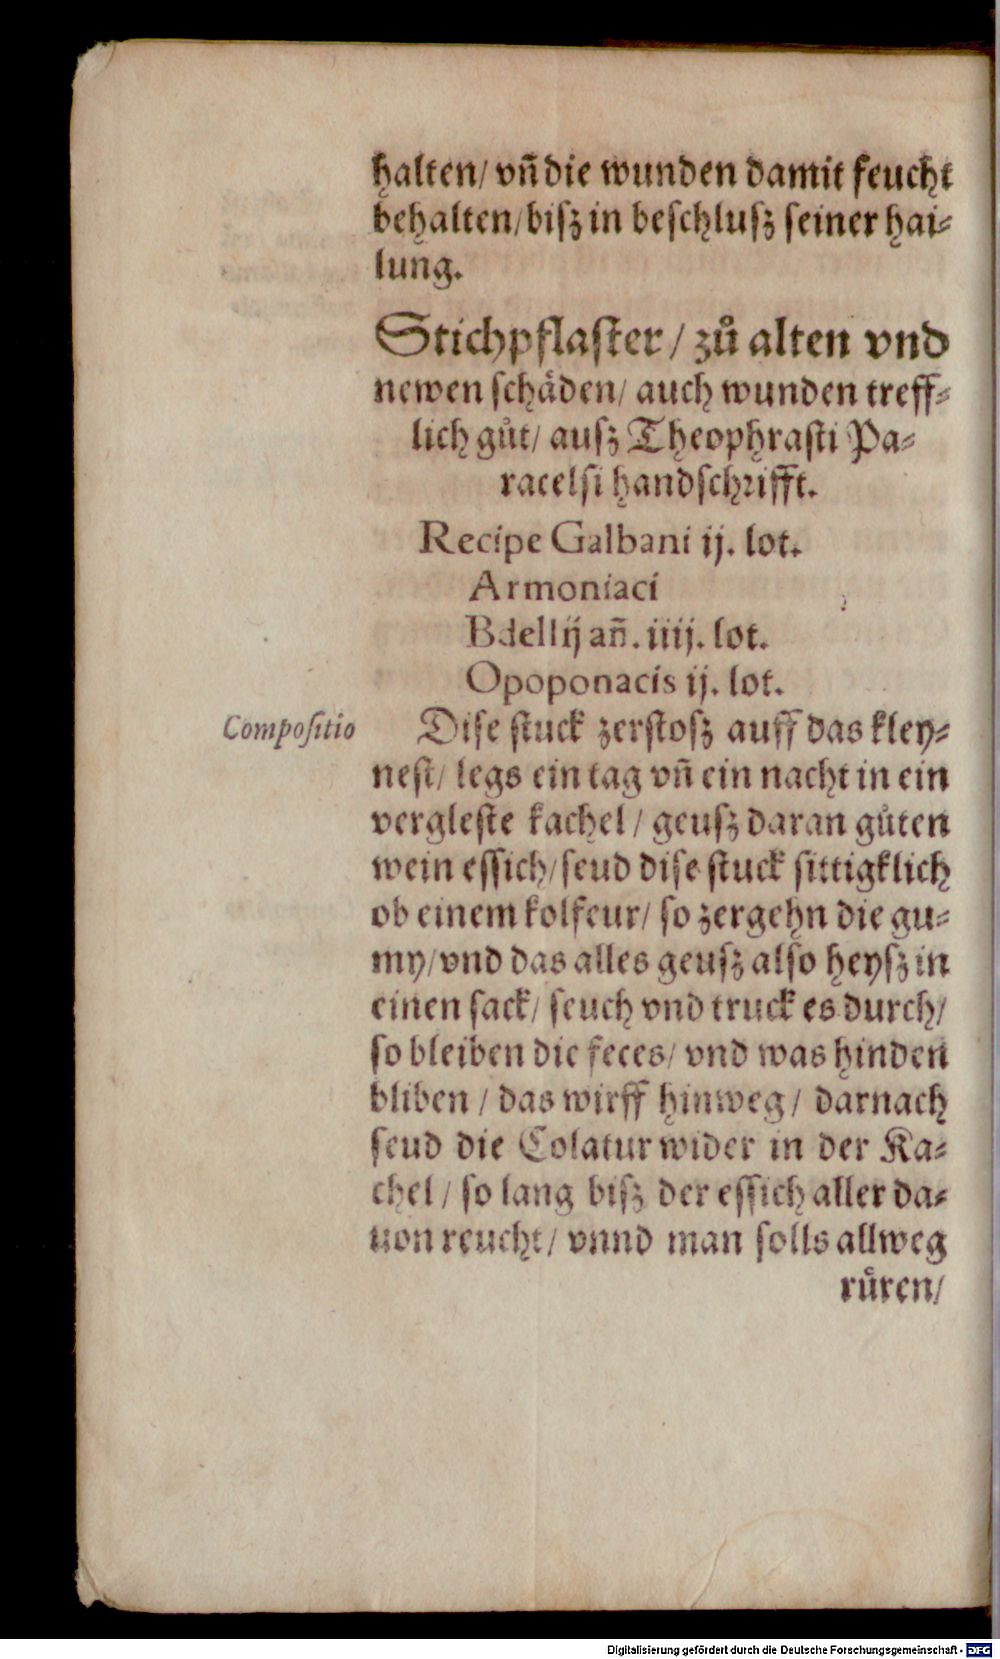 halten/ vñ die wunden damit feucht
behalten/ biſz in beſchluſz ſeiner hai⸗
lung.
Stichpflaſter / zů alten vnd
newen ſchäden/ auch wunden treff⸗
lich gůt/ auſz Theophraſti Pa⸗
racelſi handſchrifft.
Recipe Galbani ij. lot.
Armoniaci
Bdellij añ. iiij. lot.
Opoponacis ij. lot.
Compoſitio
Diſe ſtuck zerſtoſz auff das kley⸗
neſt/ legs ein tag vñ ein nacht in ein
vergleſte kachel / geuſz daran gůten
wein eſſich/ ſeud diſe ſtuck ſittigklich
ob einem kolfeur/ ſo zergehn die gu⸗
my/ vnd das alles geuſz alſo heyſz in
einen ſack/ ſeuch vnd truck es durch/
ſo bleiben die feces/ vnd was hinden
bliben / das wirff hinweg / darnach
ſeud die Colatur wider in der Ka⸗
chel / ſo lang biſz der eſſich aller da⸗
uon reucht/ vnnd man ſolls allweg
růren/
Digitalisierung gefördert durch die Deutsche Forschungsgemeinschaft - DFG